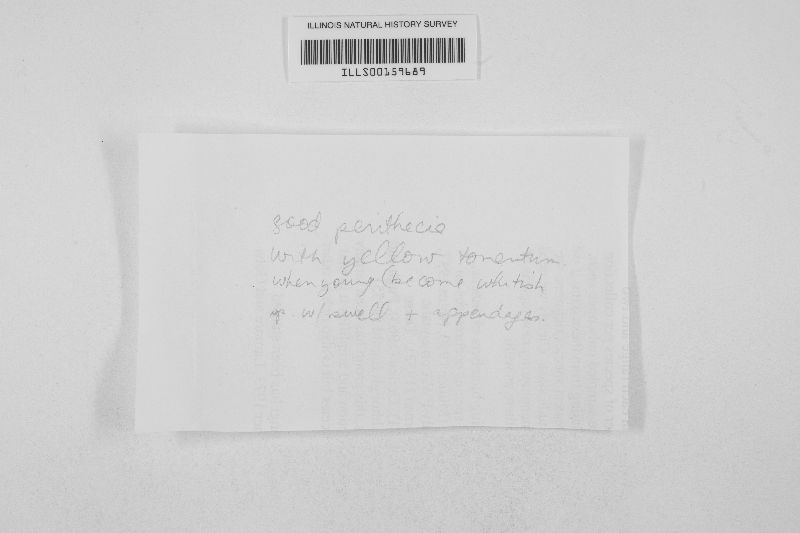 ILLINOIS NATURAL HISTORY SURVEY
ILLS00159689
good perithecia
with yellow tomentum
when young (become whitish
sp. w/ swell + appendages.